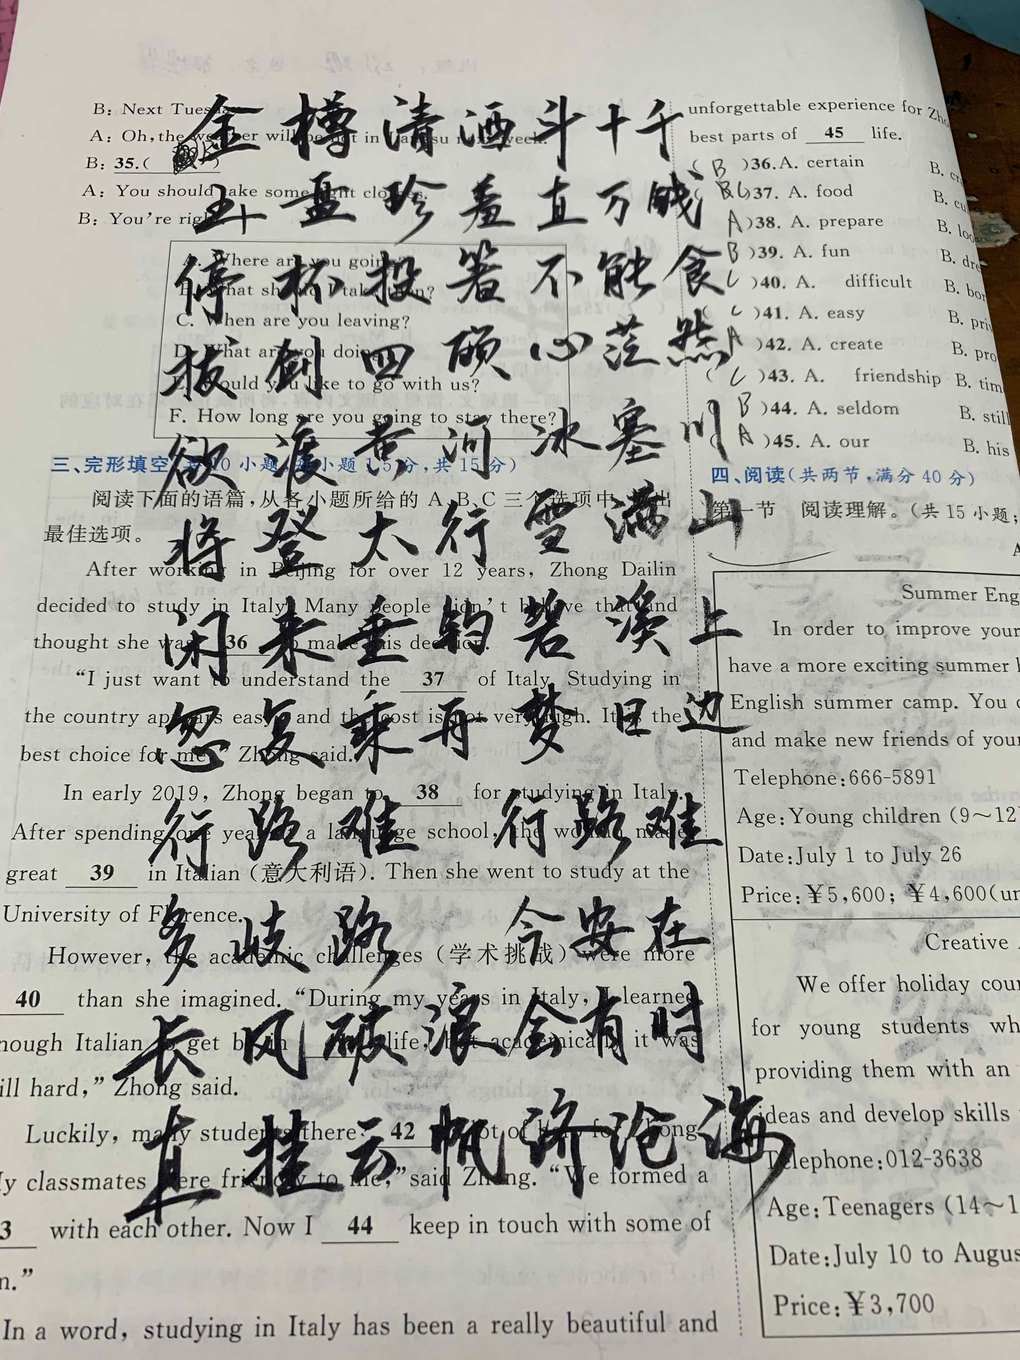 B: Next Tues
A: Oh, the weather will be hot in Jiangsu next week.
B: 35.( )
A: You should take some light clothes.
B: You're right
A. Where are you going?
B. What should I take then?
C. When are you leaving?
D. What are you doing
E. Would you like to go with us?
F. How long are you going to stay there?
三、完形填空(共10小题,每小题1.5分,共15分)
阅读下面的语篇,从各小题所给的A、B、C三个选项中选出
最佳选项。
After working in Beijing for over 12 years, Zhong Dailin
decided to study in Italy. Many people didn't believe that and
thought she was 36 to make this decision.
"I just want to understand the 37 of Italy. Studying in
the country appears easy and the cost is not very high. It is the
best choice for me," Zhong said.
In early 2019, Zhong began to 38 for studying in Italy.
After spending one year at a language school, the woman made
great 39 in Italian (意大利语). Then she went to study at the
University of Florence.
However, the academic challenges (学术挑战) were more
40 than she imagined. "During my years in Italy, I learned
nough Italian to get by in life, but academically it was
ill hard," Zhong said.
Luckily, many students there 42 lot of for Zhong.
y classmates were friendly to me," said Zhong. "We formed a
3 with each other. Now I 44 keep in touch with some of
n."
In a word, studying in Italy has been a really beautiful and
unforgettable experience for Zho
best parts of 45 life.
( B )36. A. certain B. c
37. A. food B. cu
A )38. A. prepare B. loo
B )39. A. fun B. dre
C )40. A. difficult B. bor
( C )41. A. easy B. pri
A )42. A. create B. pro
( C )43. A. friendship B. tim
B )44. A. seldom B. still
A )45. A. our B. his
四、阅读(共两节,满分40分)
第一节 阅读理解。(共15小题;
A
Summer Eng
In order to improve your
have a more exciting summer h
English summer camp. You c
and make new friends of your
Telephone:666-5891
Age:Young children (9~12
Date:July 1 to July 26
Price:¥5,600; ¥4,600(un
Creative
We offer holiday cour
for young students wh
providing them with an
ideas and develop skills
Telephone:012-3638
Age:Teenagers (14~1
Date:July 10 to Augus
Price:¥3,700
金樽清酒斗十千
玉盘珍羞直万钱
停杯投箸不能食
拔剑四顾心茫然
欲渡黄河冰塞川
将登太行雪满山
闲来垂钓碧溪上
忽复乘再梦日边
行路难 行路难
多歧路 今安在
长风破浪会有时
直挂云帆济沧海